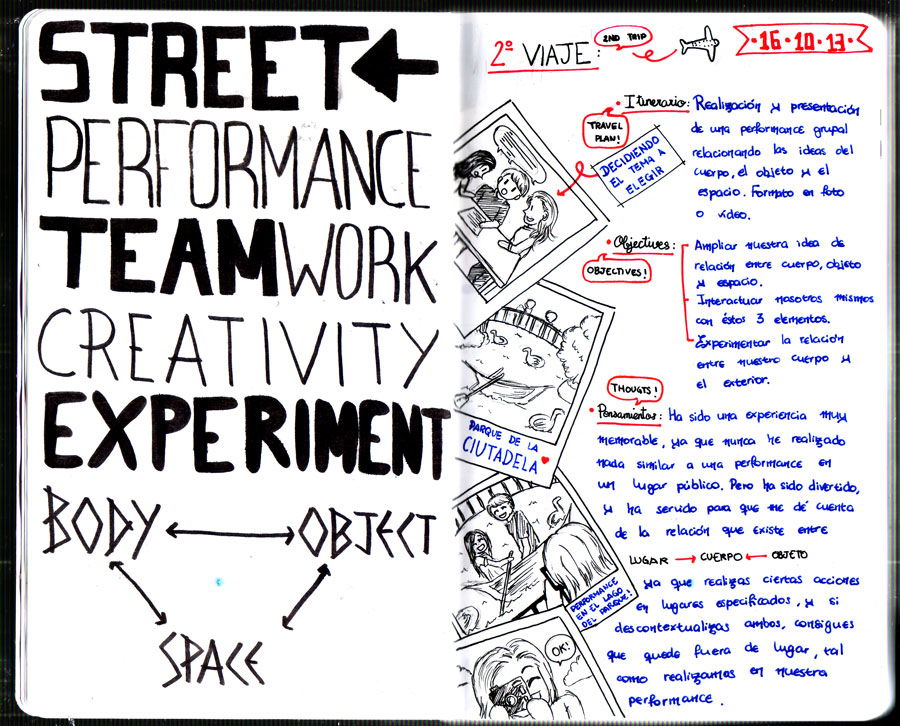 STREET
PERFORMANCE
TEAMWORK
CREATIVITY
EXPERIMENT
BODY
OBJECT
SPACE
2º VIAJE:
2ND TRIP
·16·10·13·
• Itinerario:
TRAVEL
PLAN!
Realización y presentación
de una performance grupal
relacionando las ideas del
cuerpo, el objeto y el
espacio. Formato en foto
o video.
DECIDIENDO
EL TEMA A
ELEGIR
• Objectivos:
OBJECTIVES!
Ampliar nuestra idea de
relación entre cuerpo, objeto
y espacio.
Interactuar nosotros mismos
con éstos 3 elementos.
Experimentar la relación
entre nuestro cuerpo y
el exterior.
PARQUE DE LA
CIUTADELA
THOUGTS!
• Pensamientos: Ha sido una experiencia muy
memorable, ya que nunca he realizado
nada similar a una performance en
un lugar público. Pero ha sido divertido,
y ha servido para que me dé cuenta
de la relación que existe entre
LUGAR → CUERPO ← OBJETO
ya que realizas ciertas acciones
en lugares especificados, y si
descontextualizas ambos, consigues
que quede fuera de lugar, tal
como realizamos en nuestra
performance.
PERFORMANCE
EN EL LAGO
DEL PARQUE!
OK!